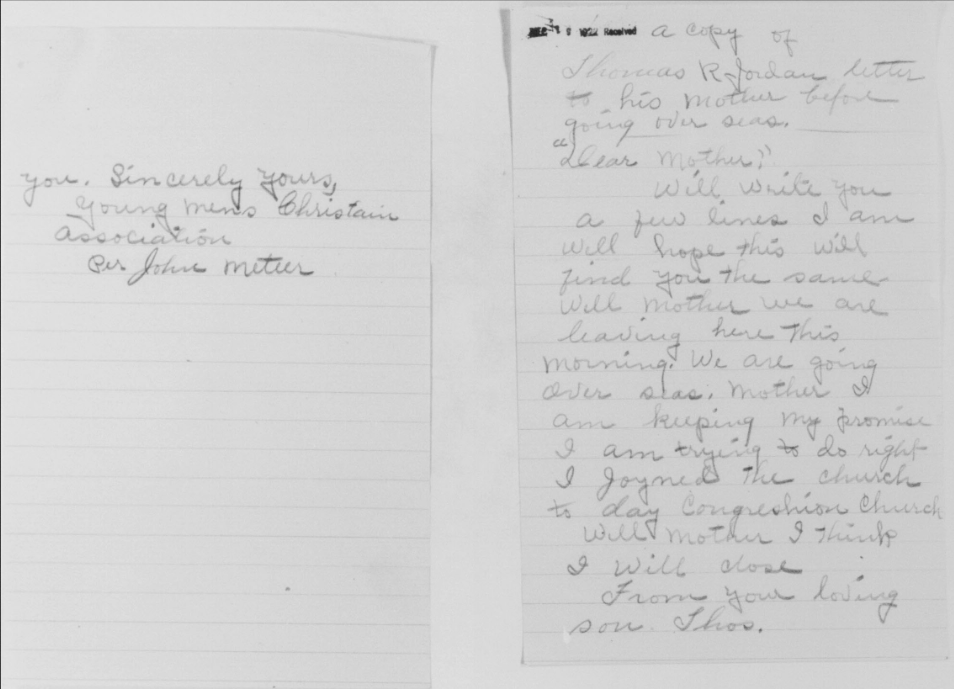 you. Sincerely yours,
Young mens Christain
Association
Per John Meteer
1922 Received
a copy of
Thomas R Jordan letter
to his mother before
going over seas.
"Dear Mother"
Will write you
a few lines I am
well hope this will
find you the same
Will Mother we are
leaving here this
morning. We are going
over seas. Mother I
am keeping my promise
I am trying to do right
I Joyned the church
to day Congreshion Church
Will Mother I think
I will close
From your loving
son Thos.